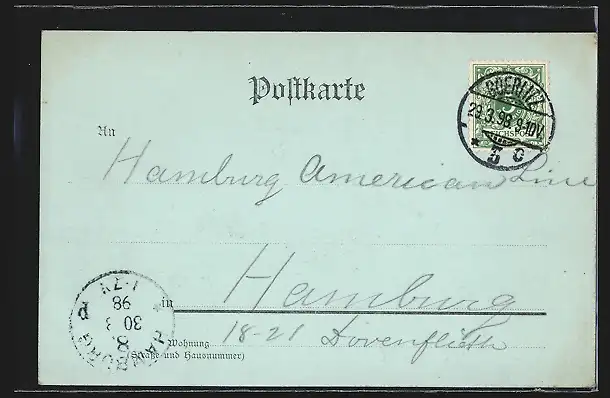 Postkarte
GOERLITZ
29.3.98.9-10V.
REICHSPOST
* 5 c
An
Hamburg American Line
in Hamburg
18-21 Dovenfleth
Wohnung
(Straße und Hausnummer)
HAMBURG
8.
30 3
98